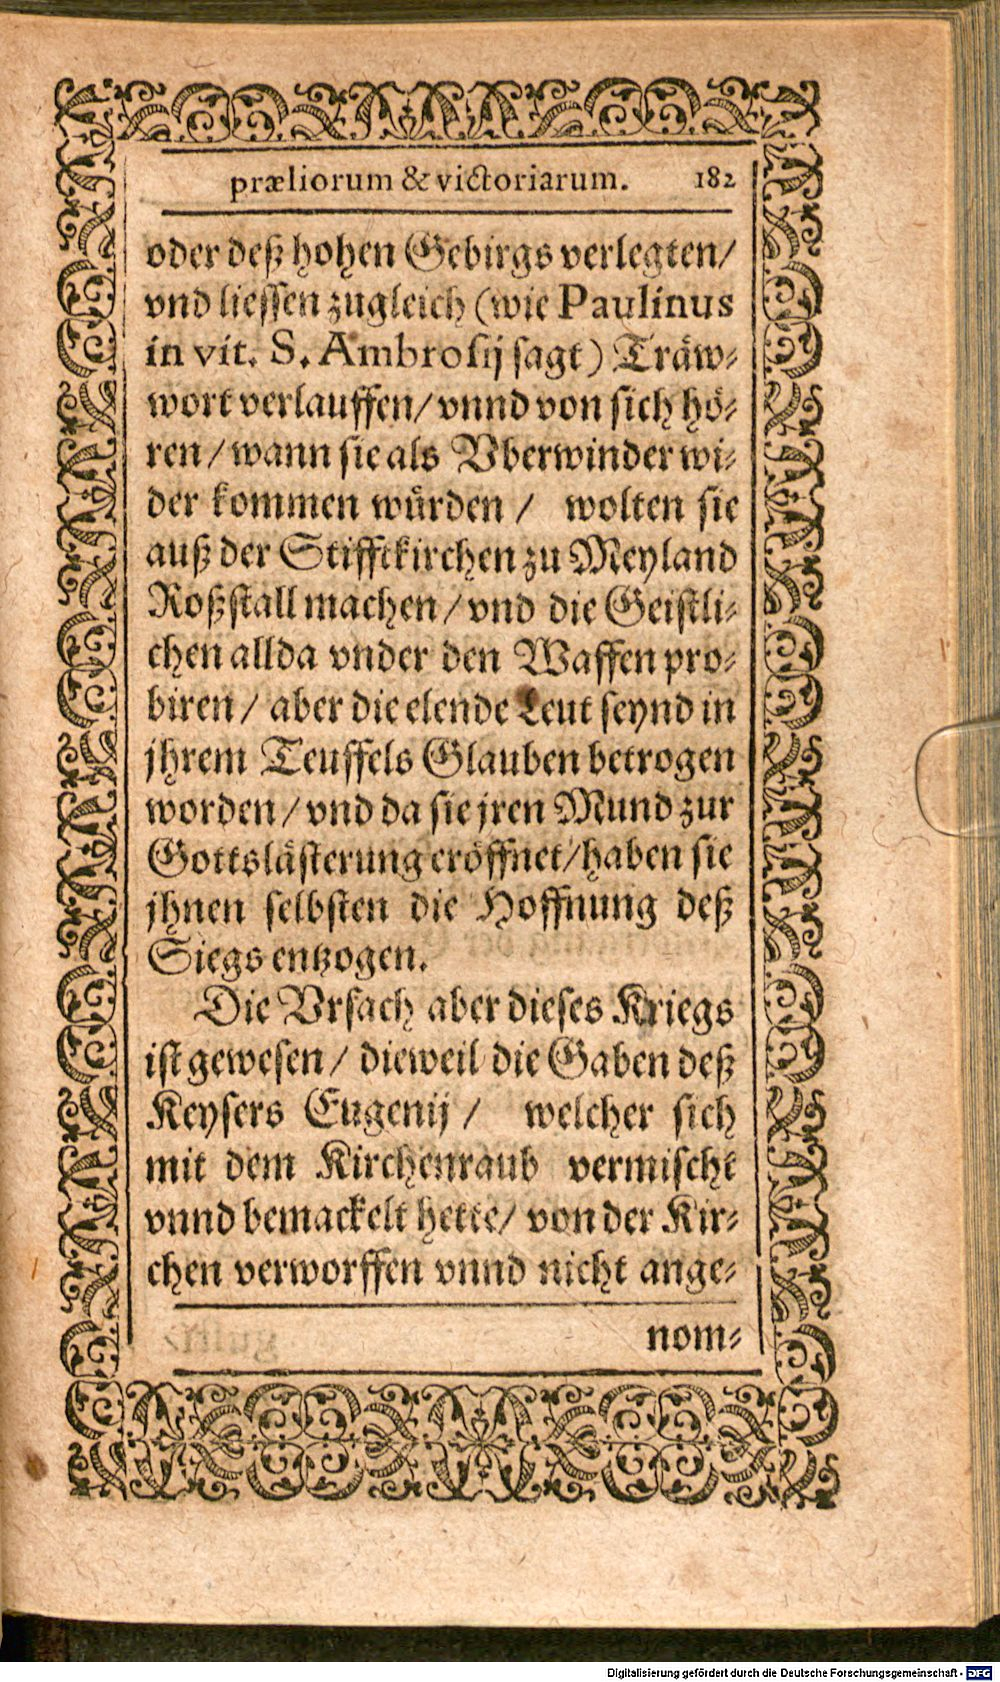 præliorum & victoriarum. 182
oder deß hohen Gebirgs verlegten/
vnd liessen zugleich (wie Paulinus
in vit. S. Ambrosij sagt) Träw-
wort verlauffen/ vnnd von sich hö-
ren / wann sie als Vberwinder wi-
der kommen würden / wolten sie
auß der Stifftkirchen zu Meyland
Roßstall machen / vnd die Geistli-
chen allda vnder den Waffen pro-
biren / aber die elende Leut seynd in
jhrem Teuffels Glauben betrogen
worden / vnd da sie jren Mund zur
Gottslästerung eröffnet/ haben sie
jhnen selbsten die Hoffnung deß
Siegs entzogen.
Die Vrsach aber dieses Kriegs
ist gewesen / dieweil die Gaben deß
Keysers Eugenij / welcher sich
mit dem Kirchenraub vermischt
vnnd bemackelt hette/ von der Kir-
chen verworffen vnnd nicht ange-
nom-
Digitalisierung gefördert durch die Deutsche Forschungsgemeinschaft - DFG